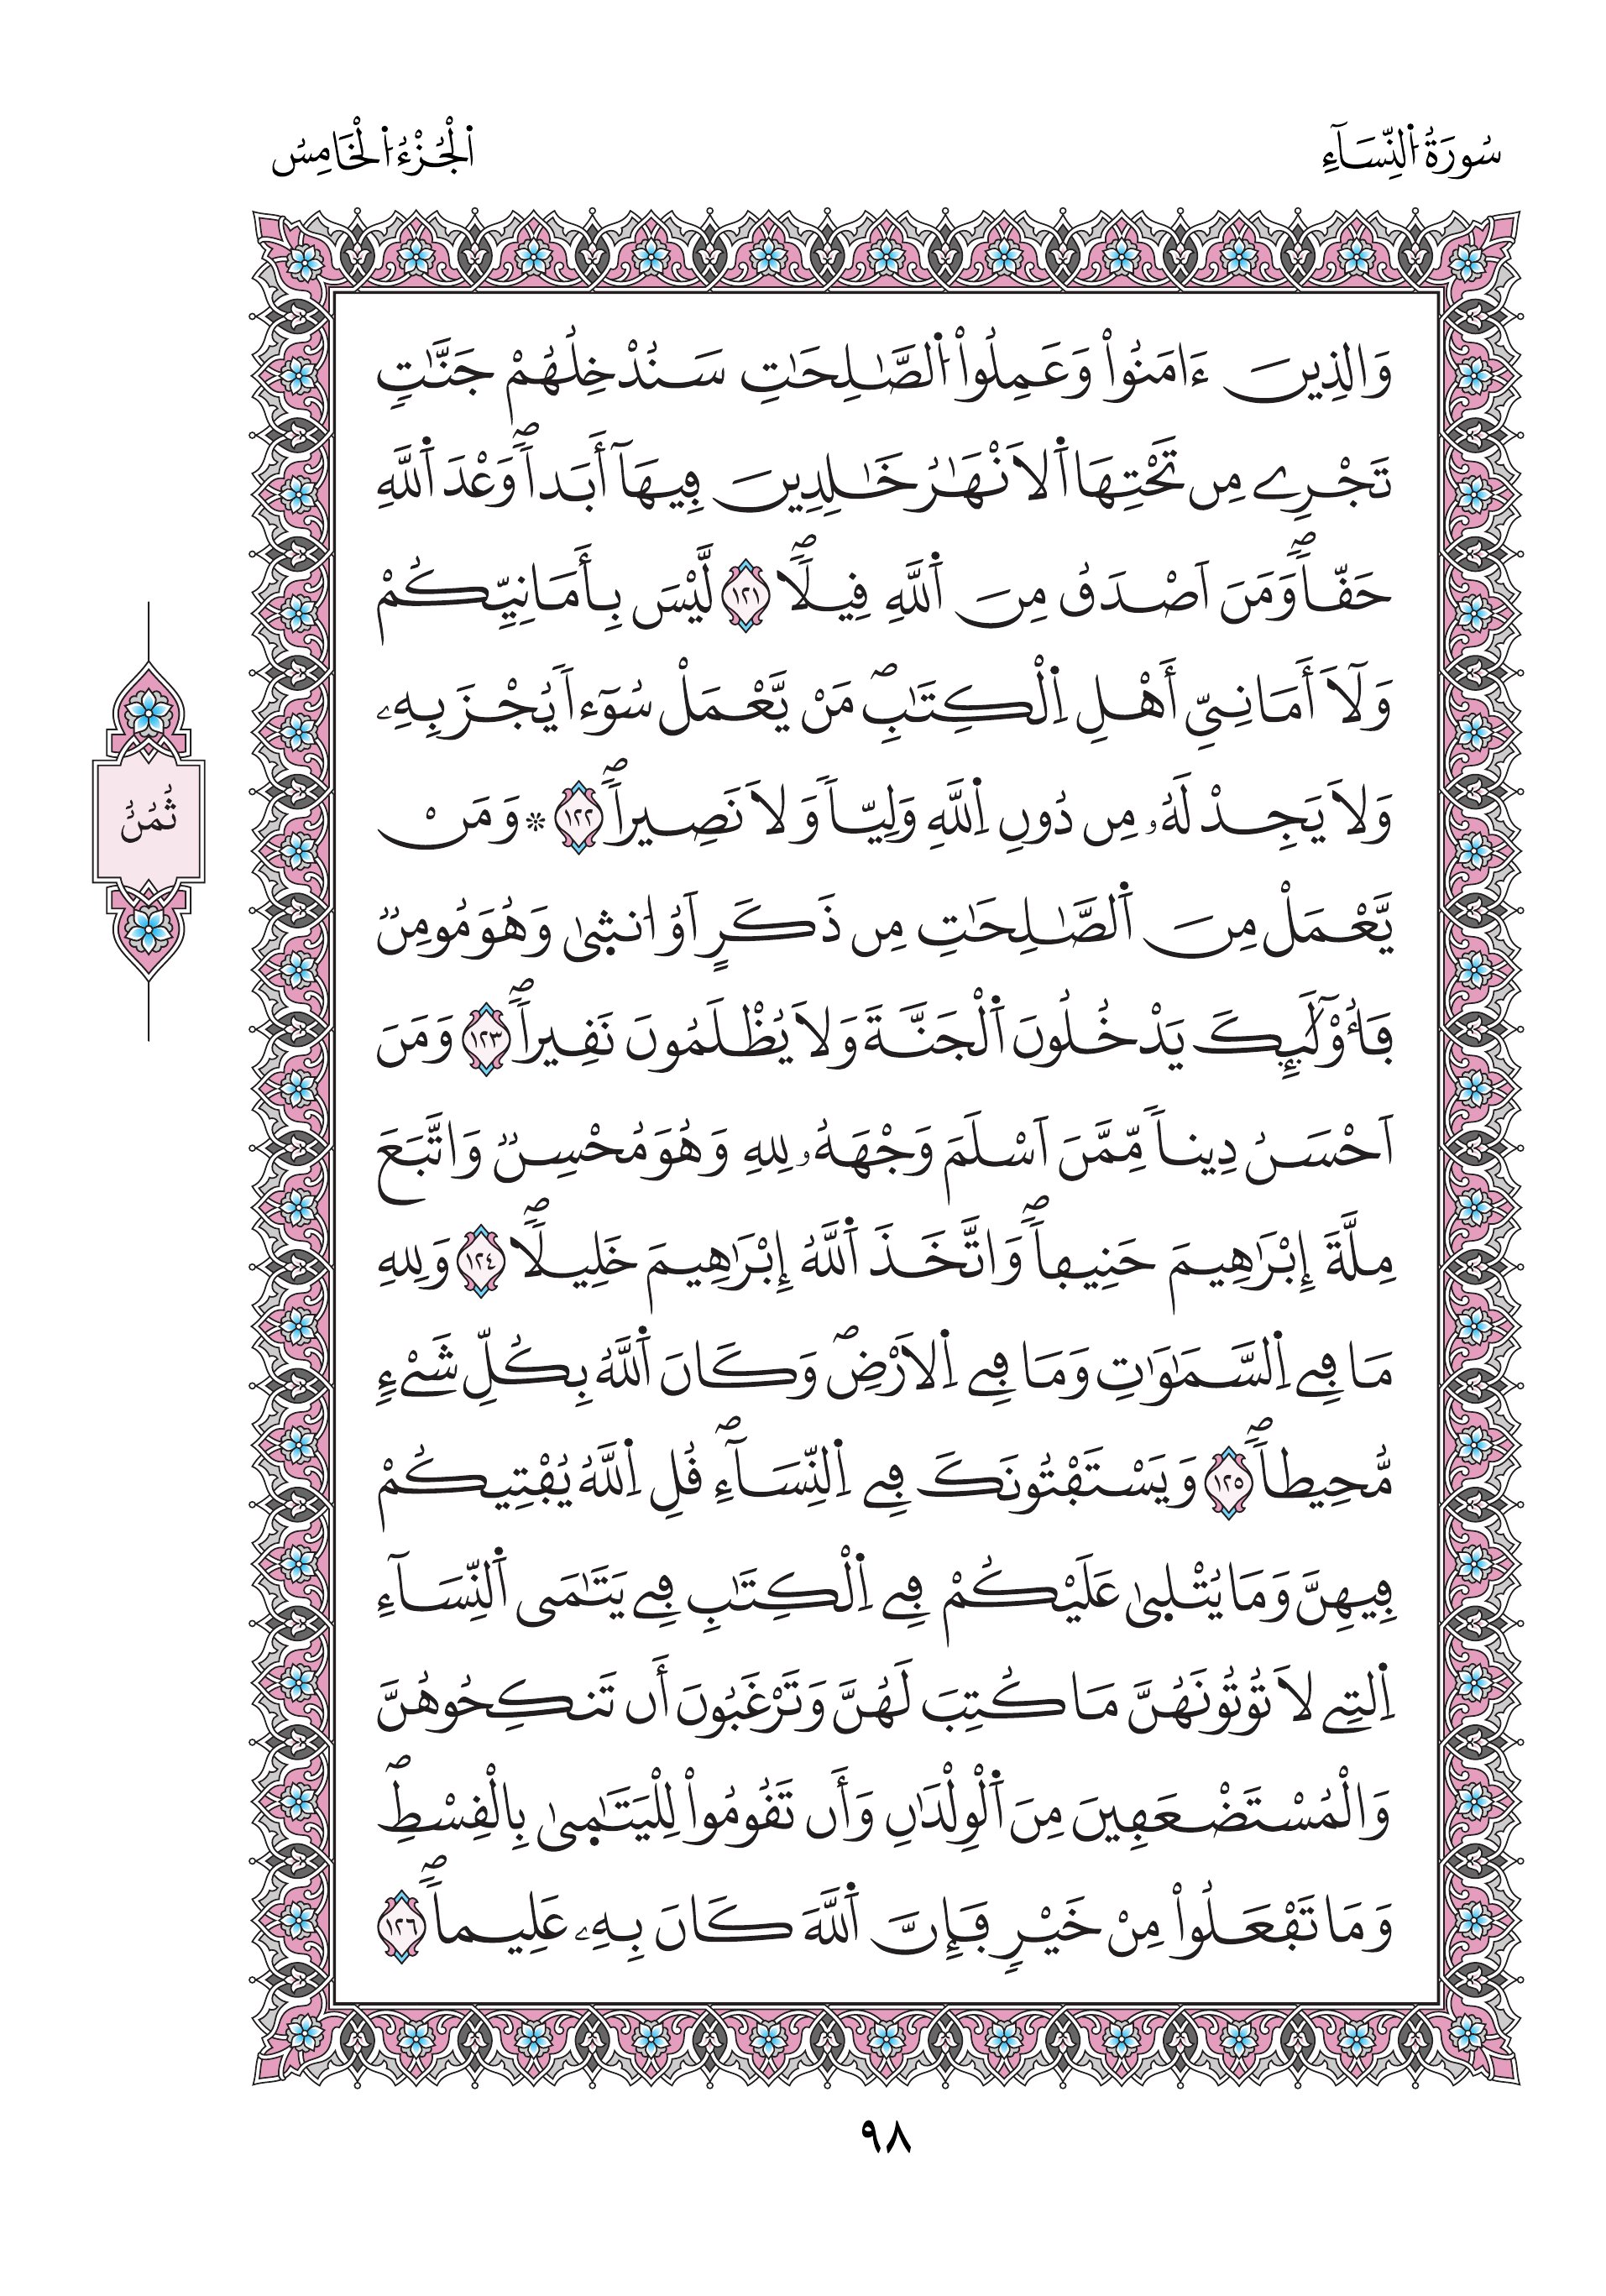 سُورَةُ اُ۬لنِّسَآءِ
اَ۬لْجُزْءُ اُ۬لْخَامِسُ
وَالذِينَ ءَامَنُواْ وَعَمِلُواْ اُ۬لصَّٰلِحَٰتِ سَنُدْخِلُهُمْ جَنَّٰتٖ
تَجْرِے مِن تَحْتِهَا اَ۬لَانْهَٰرُ خَٰلِدِينَ فِيهَآ أَبَداࣰۖ وَعْدَ اَ۬للَّهِ
حَقّاࣰۖ وَمَنَ اَصْدَقُ مِنَ اَ۬للَّهِ قِيلاࣰۖ ١٢١ لَّيْسَ بِأَمَانِيِّكُمْ
وَلَآ أَمَانِيِّ أَهْلِ اِ۬لْكِتَٰبِۖ مَنْ يَّعْمَلْ سُوٓءاࣰ يُجْزَ بِهِۦ
وَلَا يَجِدْ لَهُۥ مِن دُونِ اِ۬للَّهِ وَلِيّاࣰ وَلَا نَصِيراࣰۖ ١٢٢ ۞ وَمَنْ
يَّعْمَلْ مِنَ اَ۬لصَّٰلِحَٰتِ مِن ذَكَرٍ اَوُ ا۟نث۪ىٰ وَهُوَ مُومِنࣱ
فَأُوْلَٰٓئِكَ يَدْخُلُونَ اَ۬لْجَنَّةَ وَلَا يُظْلَمُونَ نَقِيراࣰۖ ١٢٣ وَمَنَ
اَحْسَنُ دِيناࣰ مِّمَّنَ اَسْلَمَ وَجْهَهُۥ لِلهِ وَهُوَ مُحْسِنࣱ وَاتَّبَعَ
مِلَّةَ إِبْرَٰهِيمَ حَنِيفاࣰۖ وَاتَّخَذَ اَ۬للَّهُ إِبْرَٰهِيمَ خَلِيلاࣰۖ ١٢٤ وَلِلهِ
مَا فِے اِ۬لسَّمَٰوَٰتِ وَمَا فِے اِ۬لَارْضِۖ وَكَانَ اَ۬للَّهُ بِكُلِّ شَےْءٖ
مُّحِيطاࣰۖ ١٢٥ وَيَسْتَفْتُونَكَ فِے اِ۬لنِّسَآءِۖ قُلِ اِ۬للَّهُ يُفْتِيكُمْ
فِيهِنَّ وَمَا يُتْل۪ىٰ عَلَيْكُمْ فِے اِ۬لْكِتَٰبِ فِے يَتَٰمَى اَ۬لنِّسَآءِ
اِ۬لتِے لَا تُوتُونَهُنَّ مَا كُتِبَ لَهُنَّ وَتَرْغَبُونَ أَن تَنكِحُوهُنَّ
وَالْمُسْتَضْعَفِينَ مِنَ اَ۬لْوِلْدَٰنِ وَأَن تَقُومُواْ لِلْيَتَٰم۪ىٰ بِالْقِسْطِۖ
وَمَا تَفْعَلُواْ مِنْ خَيْرٖ فَإِنَّ اَ۬للَّهَ كَانَ بِهِۦ عَلِيماࣰۖ ١٢٦
ثُمُنُ
٩٨